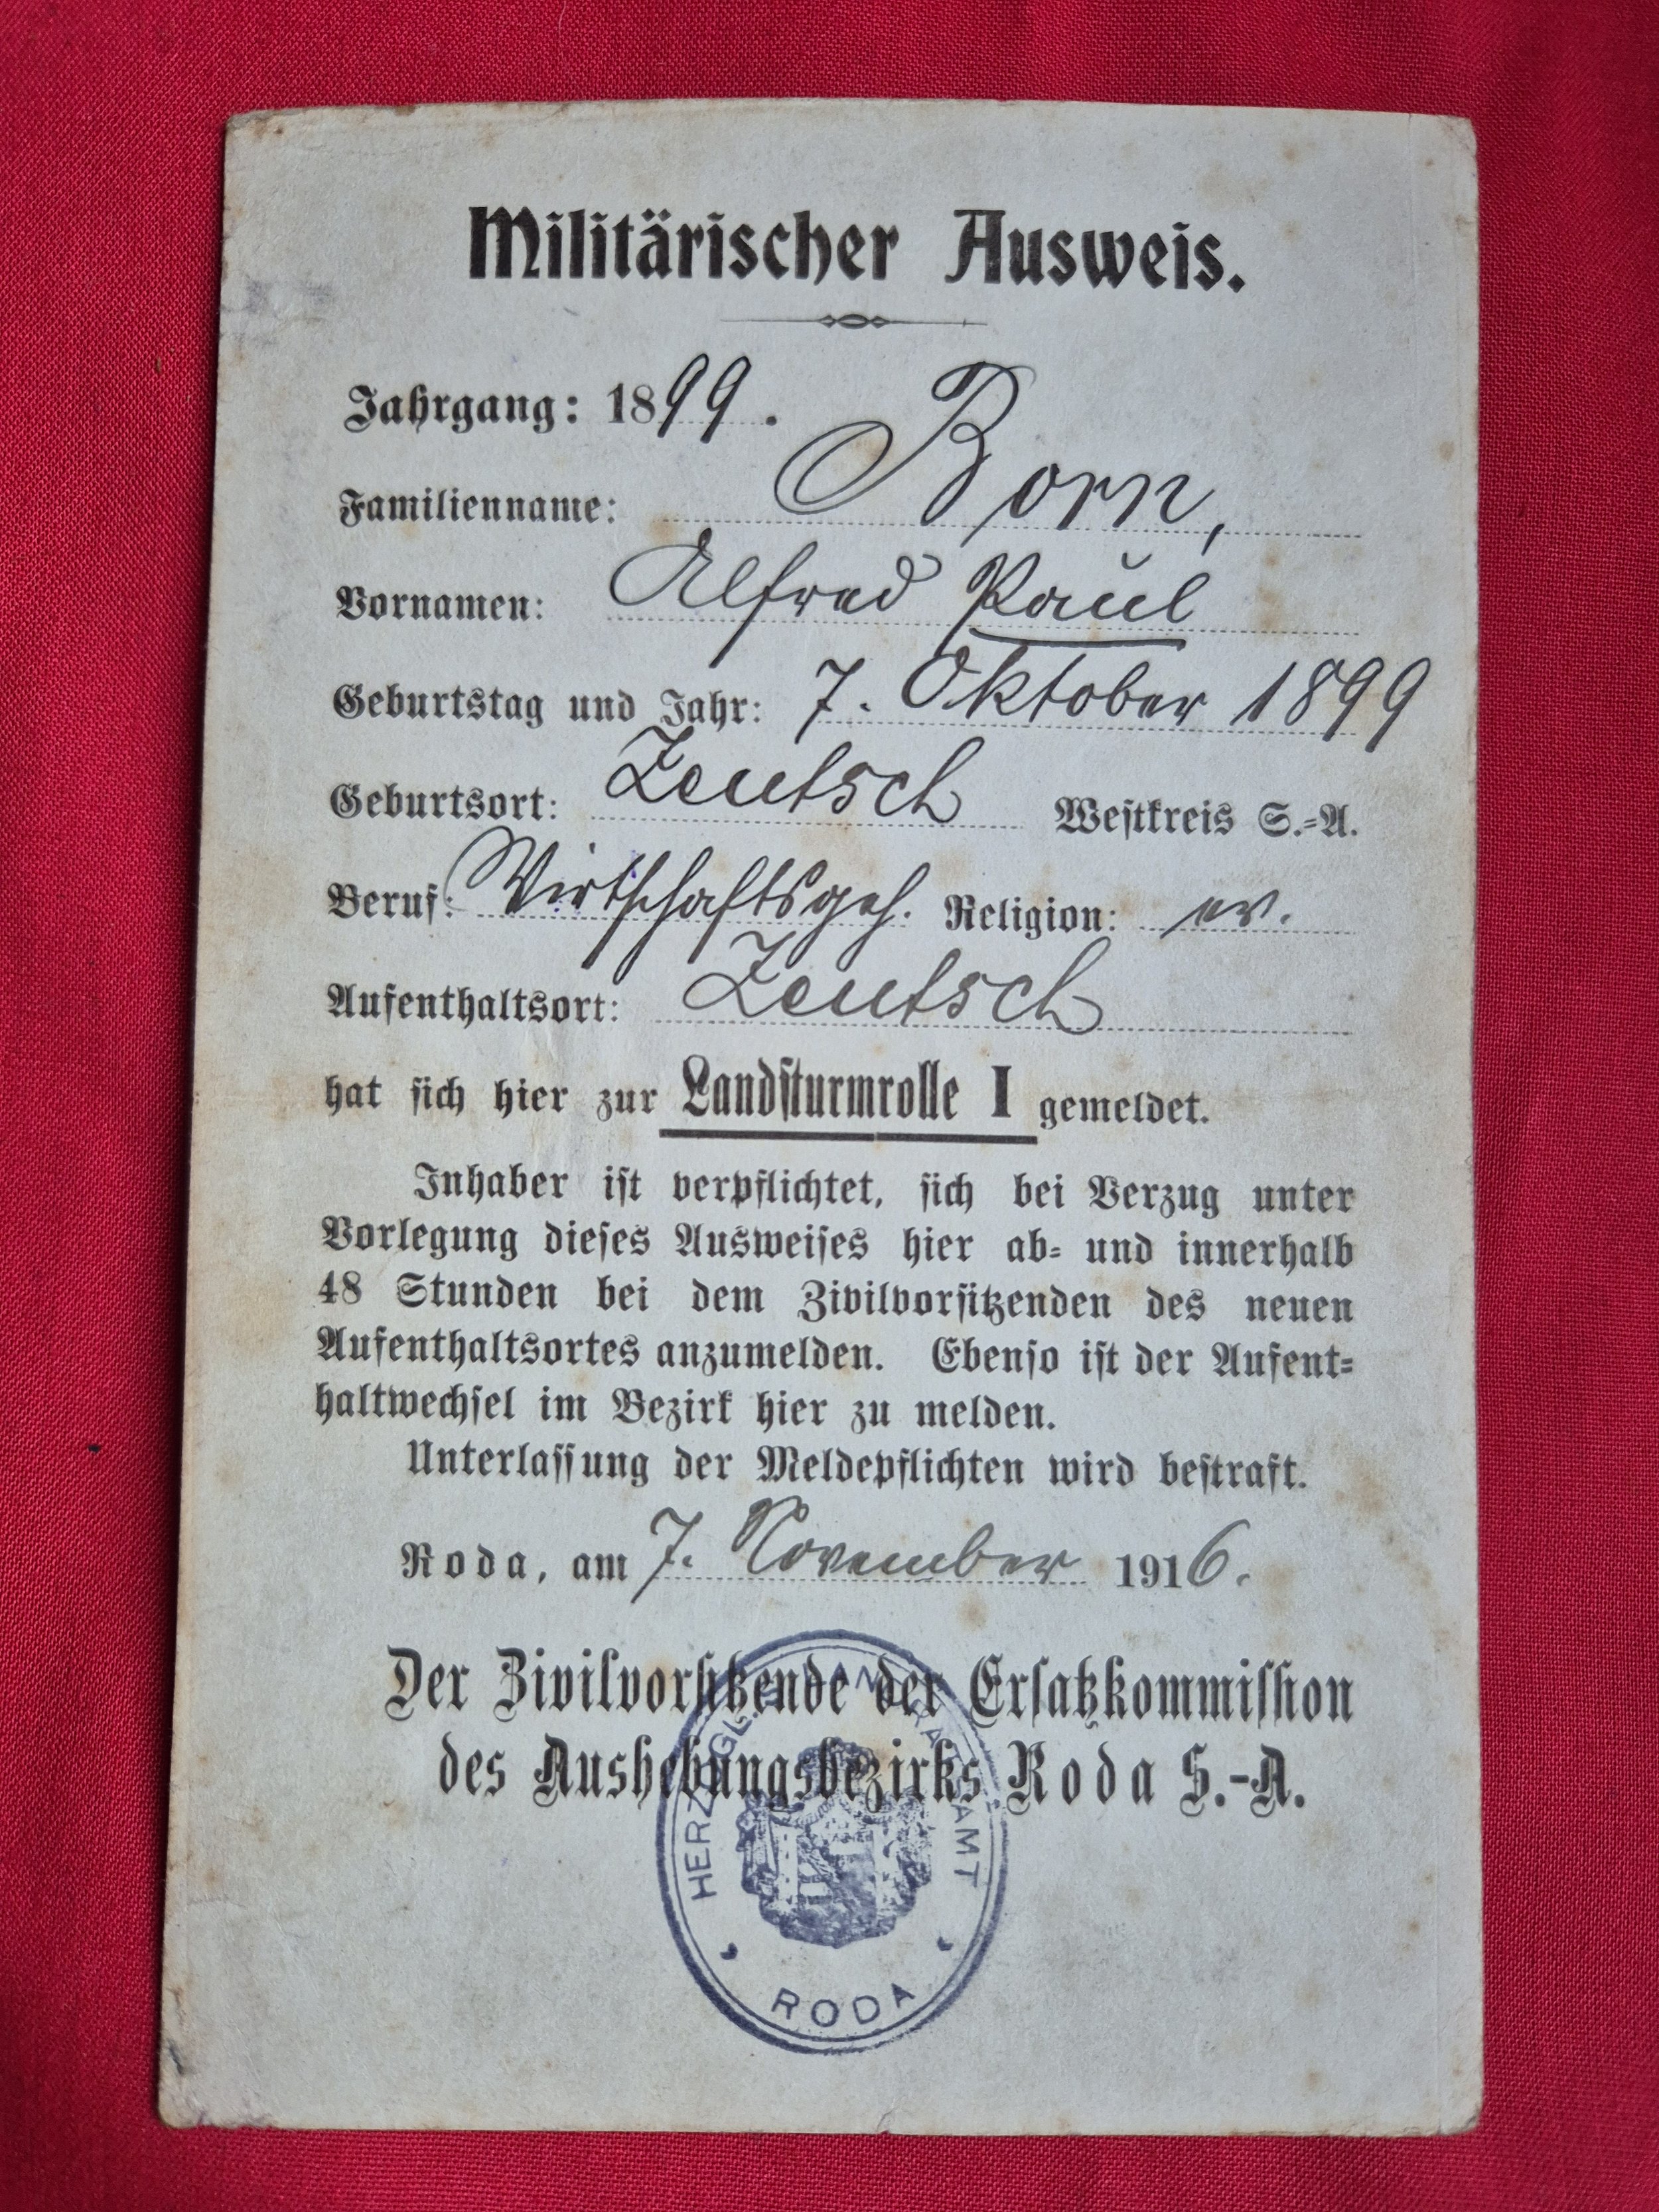 Militärischer Ausweis.
Jahrgang: 1899.
Familienname: Born,
Vornamen: Alfred Paul
Geburtstag und Jahr: 7. Oktober 1899
Geburtsort: Zeutsch Westkreis S.-A.
Beruf: Wirtschaftsgeh. Religion: ev.
Aufenthaltsort: Zeutsch
hat sich hier zur Landsturmrolle I gemeldet.
Inhaber ist verpflichtet, sich bei Verzug unter
Vorlegung dieses Ausweises hier ab- und innerhalb
48 Stunden bei dem Zivilvorsitzenden des neuen
Aufenthaltsortes anzumelden. Ebenso ist der Aufent-
haltwechsel im Bezirk hier zu melden.
Unterlassung der Meldepflichten wird bestraft.
Roda, am 7. November 1916.
Der Zivilvorsitzende der Ersatzkommission
des Aushebungsbezirks Roda S.-A.
HERZOGL. LANDRATSAMT
RODA